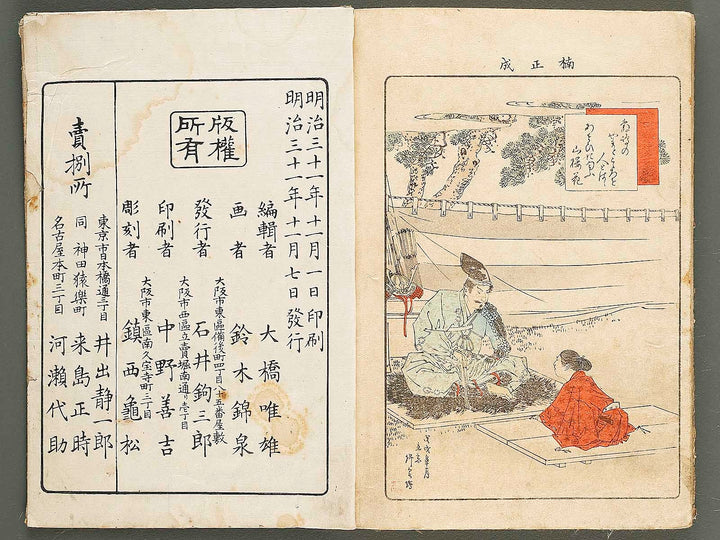 楠正成
明治三十一年十一月一日印刷
明治三十一年十一月七日發行
版權所有
編輯者 大橋唯雄
画者 鈴木錦泉
大阪市東區備後町四丁目八十五番屋敷
發行者 石井鉤三郎
大阪市西區立賣堀南通り壱丁目
印刷者 中野善吉
大阪市東區南久宝寺町三丁目
彫刻者 鎮西龜松
賣捌所
東京市日本橋通三丁目 井出静一郎
同 神田猿樂町 来島正時
名古屋本町三丁目 河瀬代助